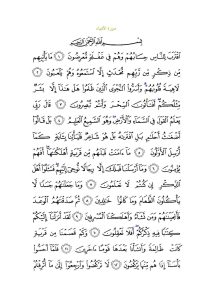 سورة الأنبياء
بِسْمِ ٱللَّهِ ٱلرَّحْمَـٰنِ ٱلرَّحِيمِ
ٱقْتَرَبَ لِلنَّاسِ حِسَابُهُمْ وَهُمْ فِى غَفْلَةٍ مُّعْرِضُونَ ١ مَا يَأْتِيهِم
مِّن ذِكْرٍ مِّن رَّبِّهِم مُّحْدَثٍ إِلَّا ٱسْتَمَعُوهُ وَهُمْ يَلْعَبُونَ ٢
لَاهِيَةً قُلُوبُهُمْ وَأَسَرُّوا۟ ٱلنَّجْوَى ٱلَّذِينَ ظَلَمُوا۟ هَلْ هَـٰذَآ إِلَّا بَشَرٌ
مِّثْلُكُمْ أَفَتَأْتُونَ ٱلسِّحْرَ وَأَنتُمْ تُبْصِرُونَ ٣ قَالَ رَبِّى
يَعْلَمُ ٱلْقَوْلَ فِى ٱلسَّمَآءِ وَٱلْأَرْضِ وَهُوَ ٱلسَّمِيعُ ٱلْعَلِيمُ ٤ بَلْ قَالُوٓا۟
أَضْغَـٰثُ أَحْلَـٰمٍۭ بَلِ ٱفْتَرَىٰهُ بَلْ هُوَ شَاعِرٌ فَلْيَأْتِنَا بِـَٔايَةٍ كَمَآ
أُرْسِلَ ٱلْأَوَّلُونَ ٥ مَآ ءَامَنَتْ قَبْلَهُم مِّن قَرْيَةٍ أَهْلَكْنَـٰهَآ أَفَهُمْ
يُؤْمِنُونَ ٦ وَمَآ أَرْسَلْنَا قَبْلَكَ إِلَّا رِجَالًا نُّوحِىٓ إِلَيْهِمْ فَسْـَٔلُوٓا۟ أَهْلَ
ٱلذِّكْرِ إِن كُنتُمْ لَا تَعْلَمُونَ ٧ وَمَا جَعَلْنَـٰهُمْ جَسَدًا لَّا
يَأْكُلُونَ ٱلطَّعَامَ وَمَا كَانُوا۟ خَـٰلِدِينَ ٨ ثُمَّ صَدَقْنَـٰهُمُ ٱلْوَعْدَ
فَأَنجَيْنَـٰهُمْ وَمَن نَّشَآءُ وَأَهْلَكْنَا ٱلْمُسْرِفِينَ ٩ لَقَدْ أَنزَلْنَآ إِلَيْكُمْ
كِتَـٰبًا فِيهِ ذِكْرُكُمْ أَفَلَا تَعْقِلُونَ ١٠ وَكَمْ قَصَمْنَا مِن قَرْيَةٍ
كَانَتْ ظَالِمَةً وَأَنشَأْنَا بَعْدَهَا قَوْمًا ءَاخَرِينَ ١١ فَلَمَّآ أَحَسُّوا۟
بَأْسَنَآ إِذَا هُم مِّنْهَا يَرْكُضُونَ ١٢ لَا تَرْكُضُوا۟ وَٱرْجِعُوٓا۟ إِلَىٰ مَآ أُتْرِفْتُمْ